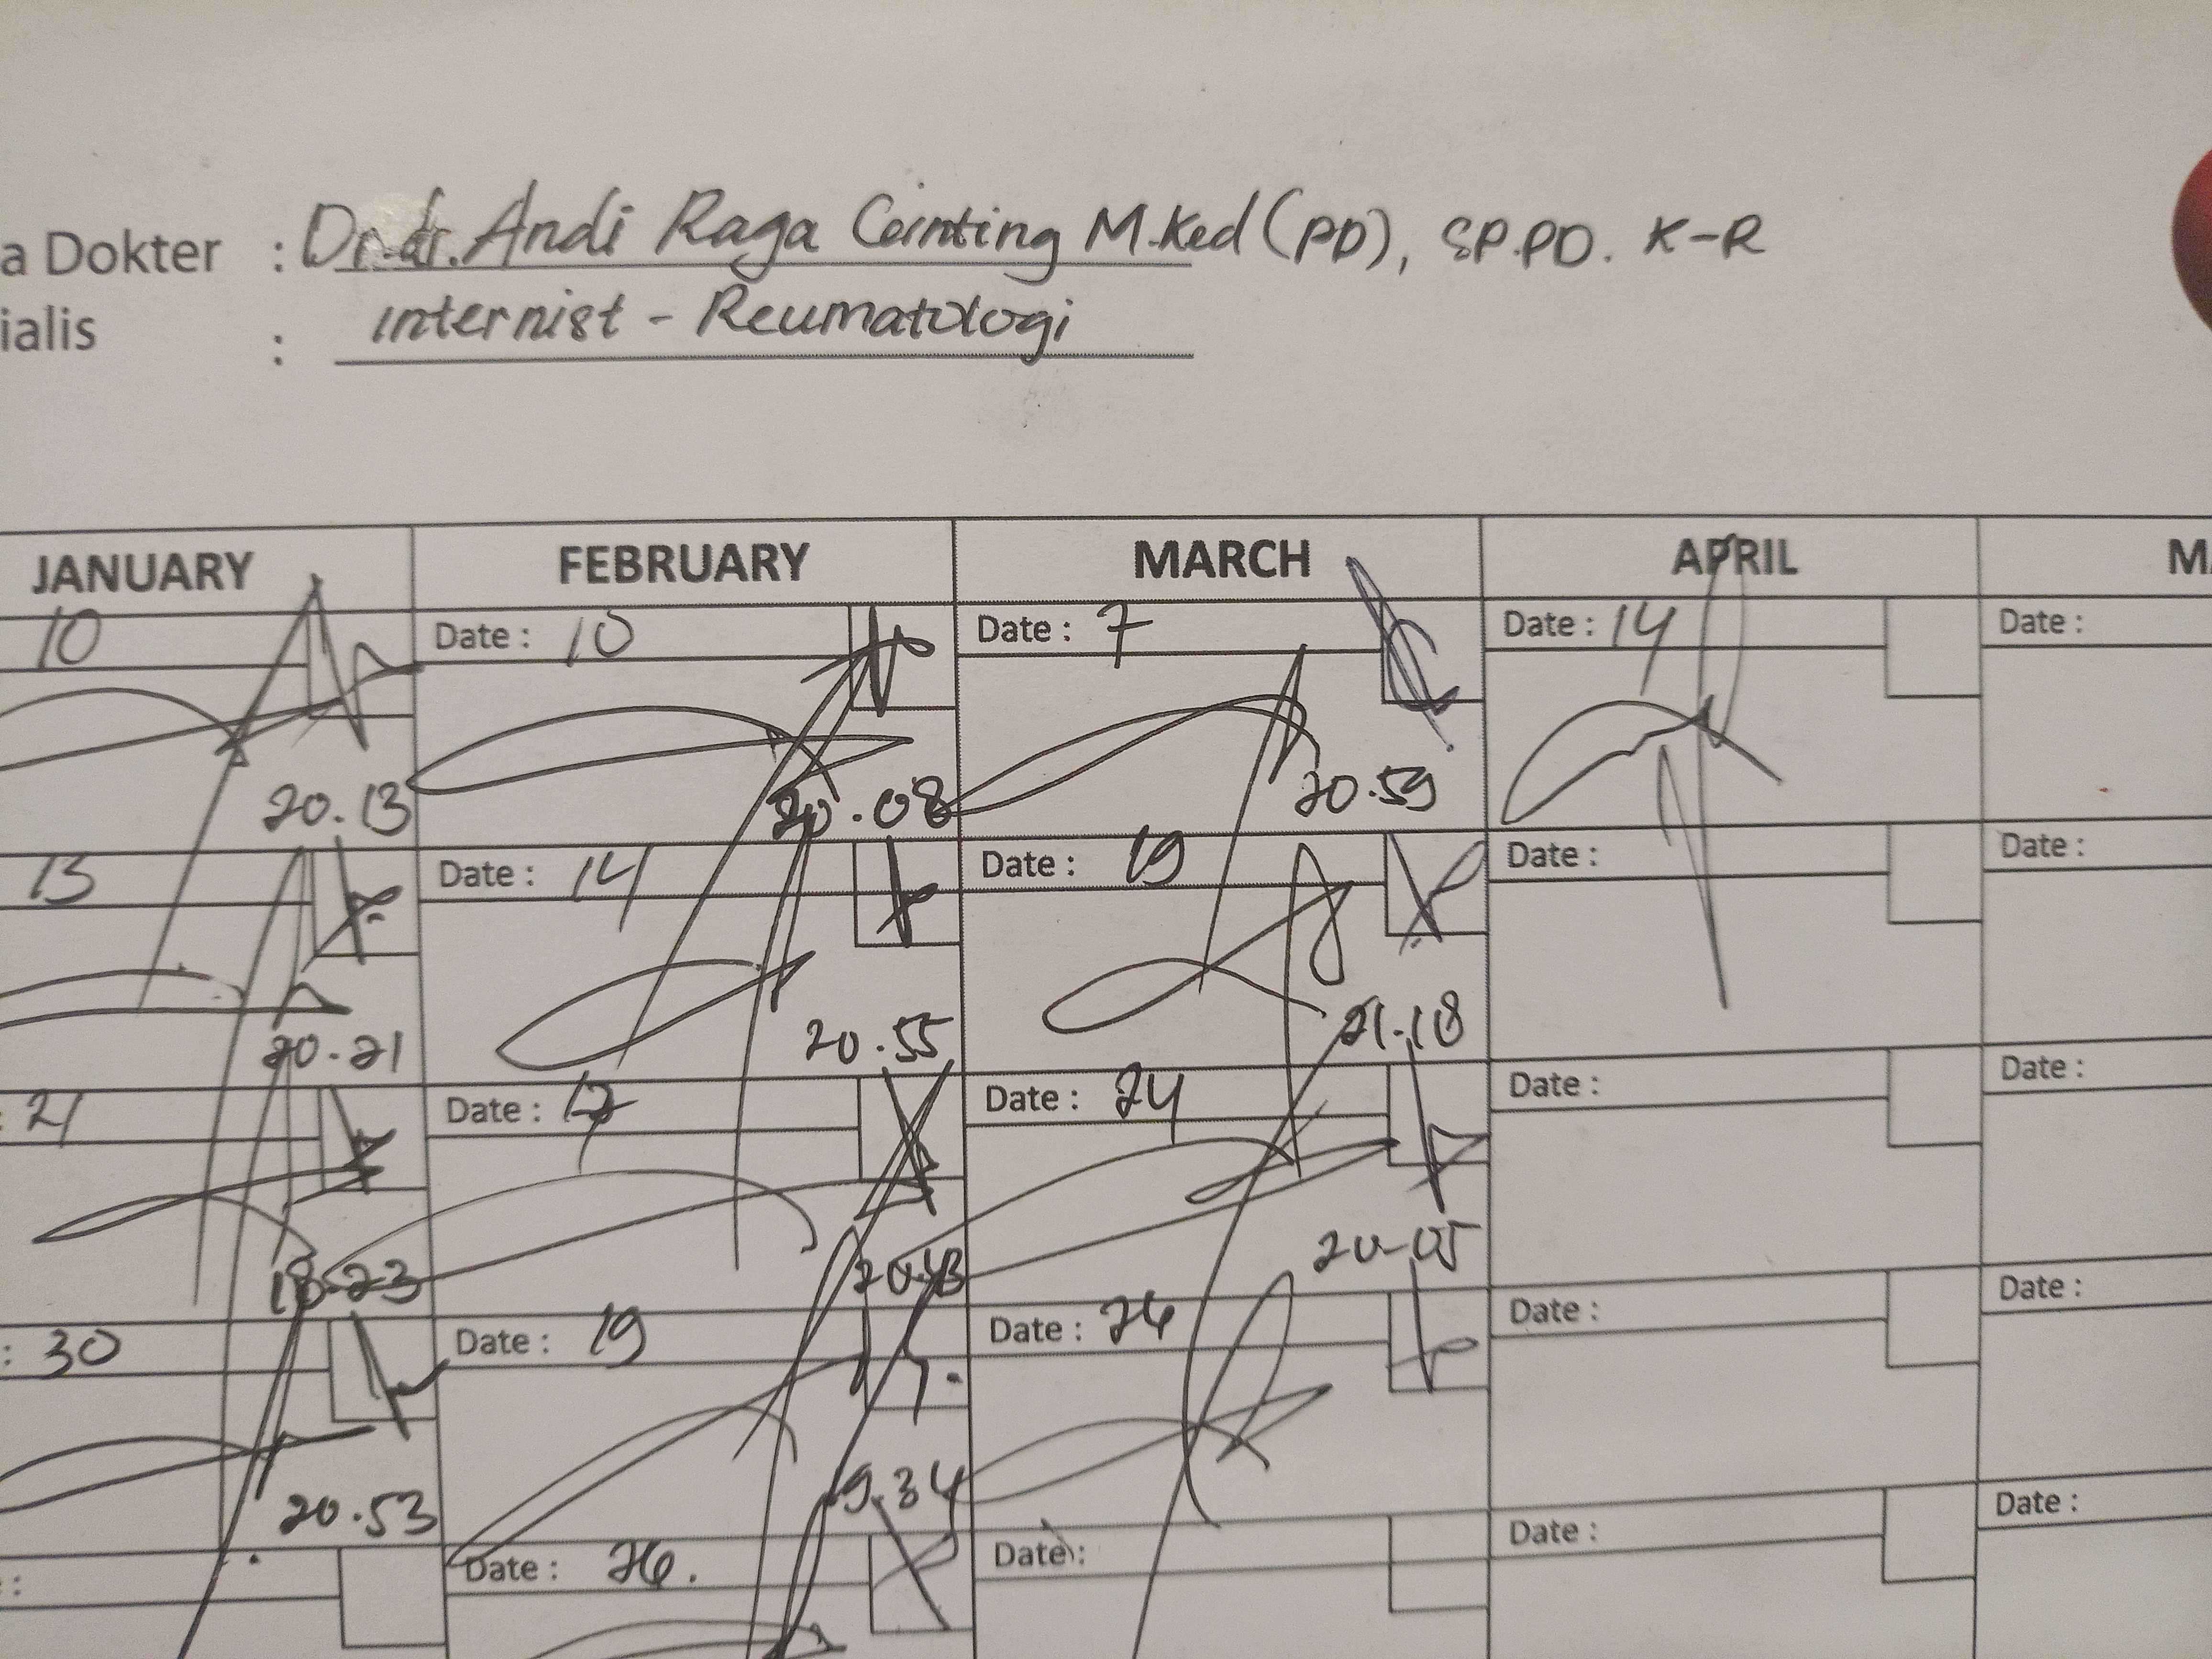 a Dokter : Dr. dr. Andi Raga Ginting M.Ked (PD), SP.PD. K-R
ialis : Internist - Reumatologi
JANUARY FEBRUARY MARCH APRIL M
10 Date : 10 Date : 7 Date : 14 Date :
20.13 20.08 20.59
13 Date : 14 Date : 19 Date : Date :
20.21 20.55 21.18
: 21 Date : 17 Date : 24 Date : Date :
18-23 20.43 20-05
: 30 Date : 19 Date : 26 Date : Date :
20.53 19.34
: Date : 26. Date : Date : Date :